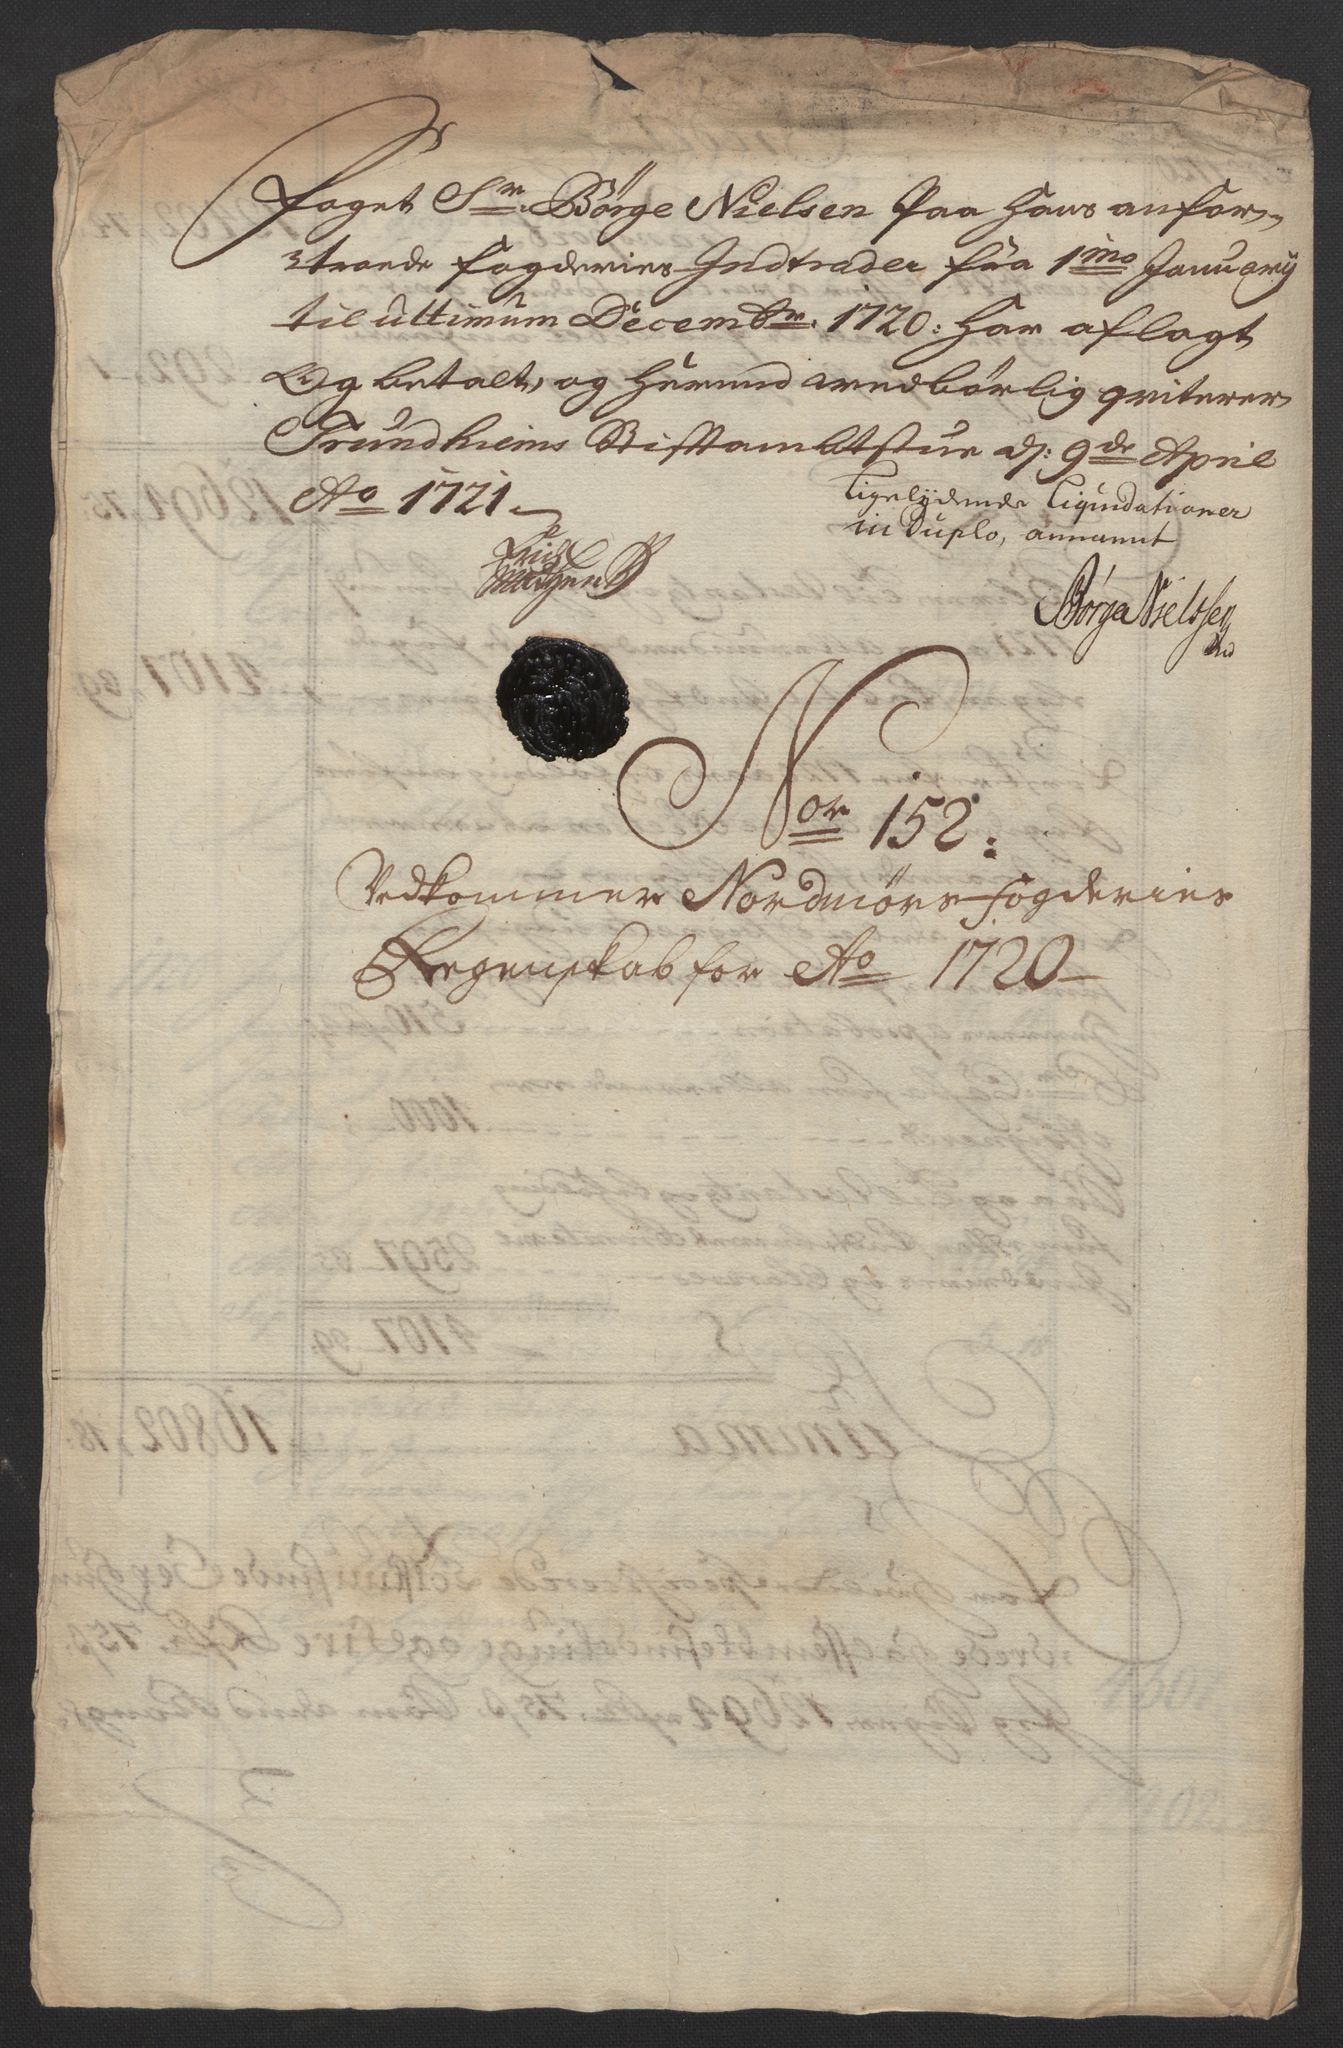 Foget Sr. Börge Nielsen Paa Hans anfor-
troede fogderies Indtrader fra 1mo January
til ultimum Decembr. 1720: Har aflagt
Og betalt, og Herimod vedbörlig qviterer
Trundhiems Stiftambtstue d: 9de April
Ao 1721.
Ligelydende Liqvidationer
in Duplo, annammt
Börge Nielssen
Nor 152:
Vedkommer Nordmörs fogderies
Regenskab for Ao 1720